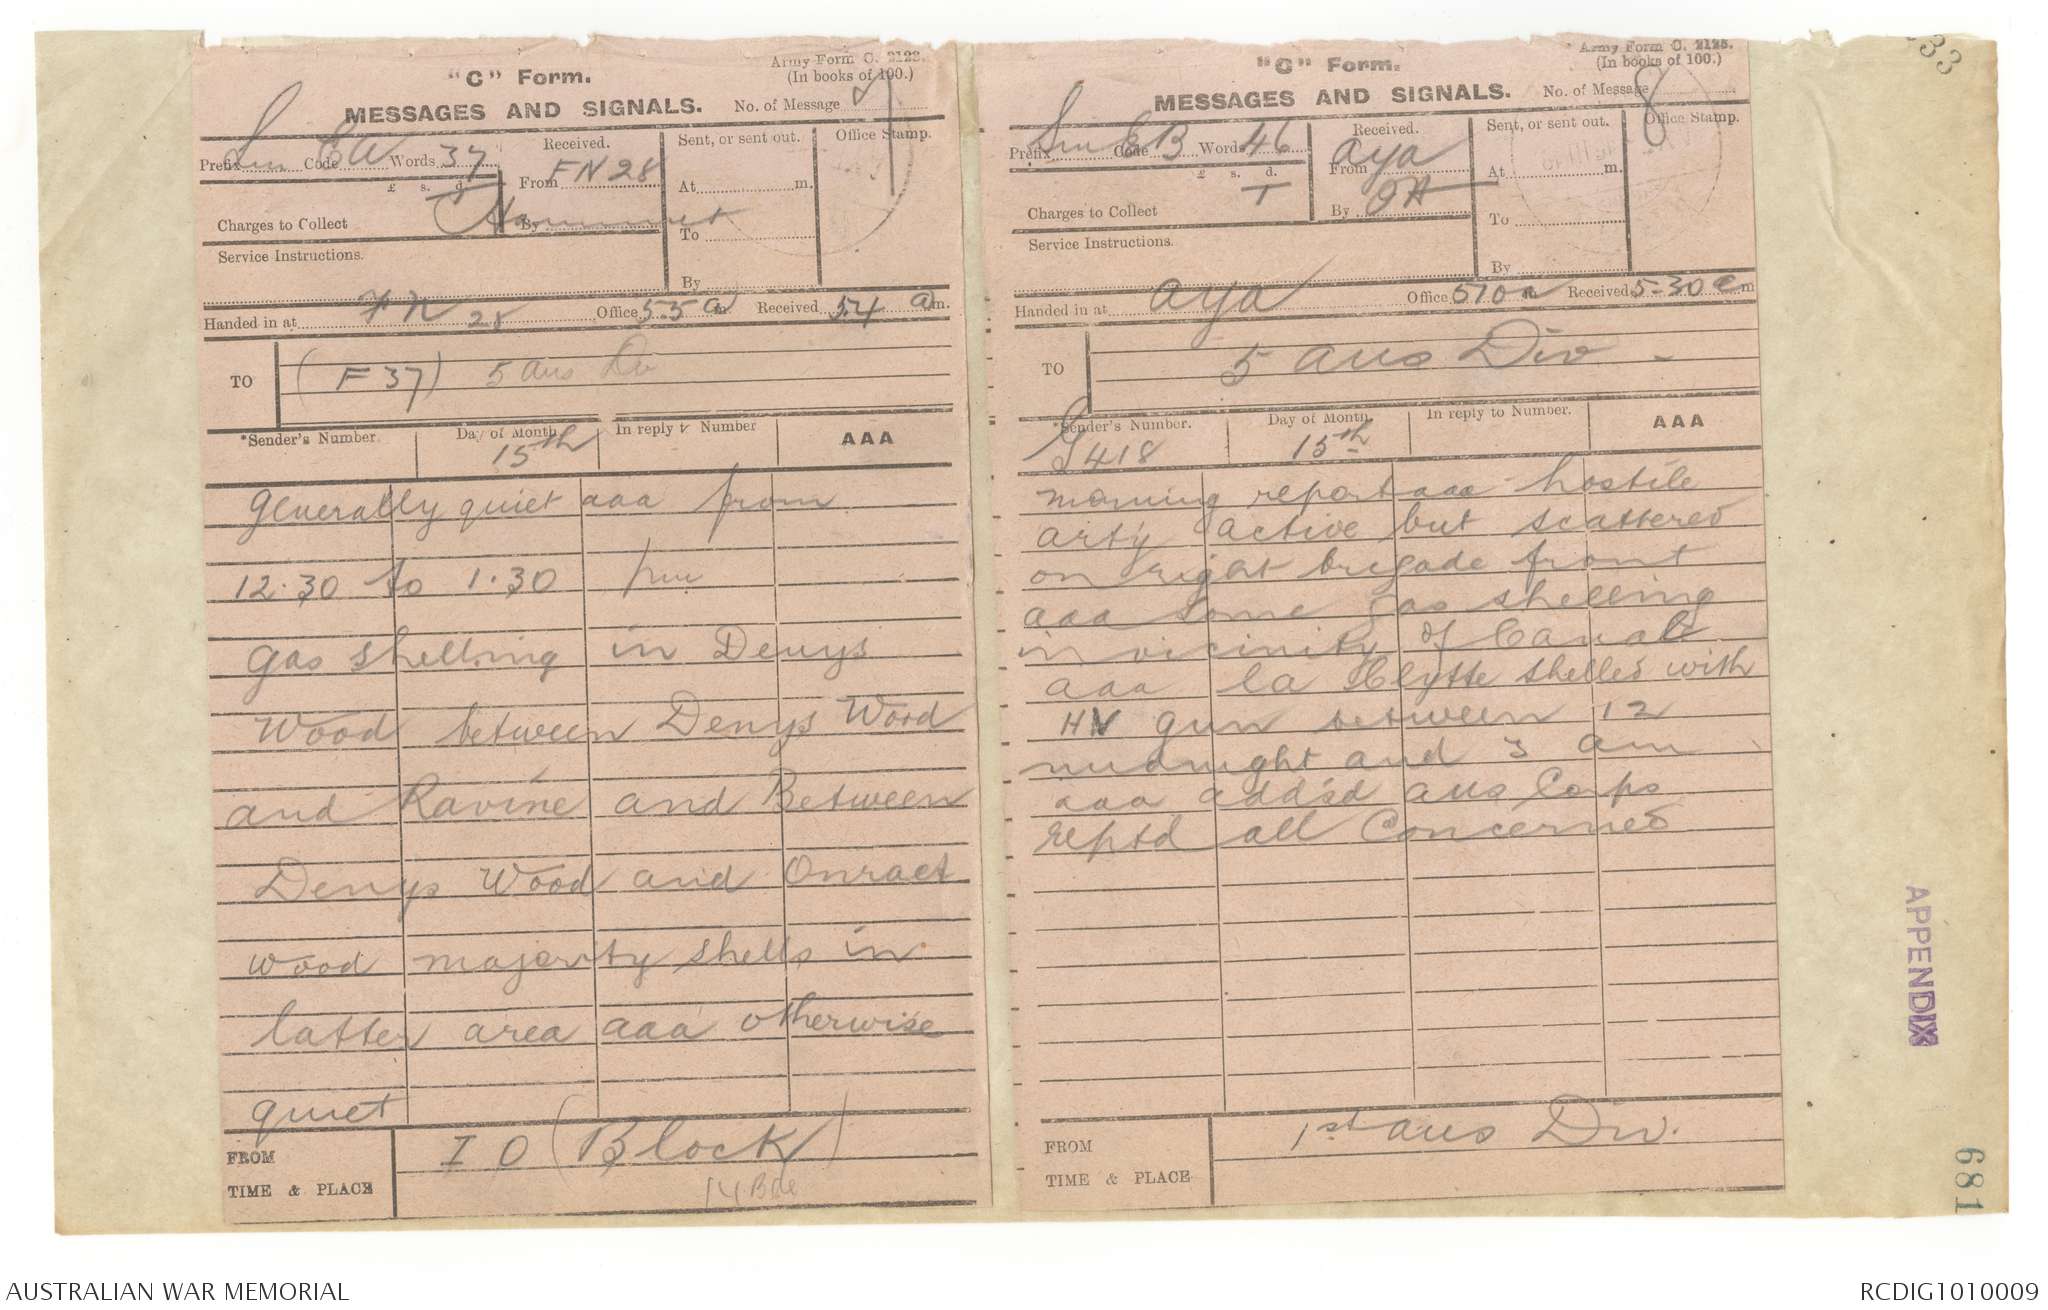 "C" Form.
Army Form C. 2123.
(In books of 100.)
MESSAGES AND SIGNALS.
No. of Message
Prefix Sm Code EW Words 37
Received.
From FN28
By
Sent, or sent out.
At m.
To
By
Office Stamp.
£ s. d.
Charges to Collect
Service Instructions.
Handed in at FN 28 Office 5.5 a m Received 5.4 a m.
TO
(F37) 5 Aus Div
*Sender's Number.
Day of Month
15th
In reply to Number
AAA
Generally quiet aaa from
12.30 to 1.30 pm
gas shelling in Denys
Wood between Denys Wood
and Ravine and Between
Denys Wood and Onraet
Wood majority shells in
latter area aaa otherwise
quiet
FROM
TIME & PLACE
I O (Block)
14 Bde
"C" Form.
Army Form C. 2123.
(In books of 100.)
MESSAGES AND SIGNALS.
No. of Message 8
Prefix Sm Code EB Words 46
Received.
From aya
By
Sent, or sent out.
At m.
To
By
Office Stamp.
£ s. d.
Charges to Collect
Service Instructions.
Handed in at aya Office 510 a m Received 5-30 a m
TO
5 Aus Div
*Sender's Number.
G418
Day of Month.
15th
In reply to Number.
AAA
morning report aaa hostile
arty active but scattered
on right brigade front
aaa some gas shelling
in vicinity of Canal
aaa la Clytte shelled with
HV gun between 12
midnight and 3 am
aaa addsd aus Corps
reptd all Concerned
FROM
TIME & PLACE
1st aus Div.
33
APPENDIX
681
AUSTRALIAN WAR MEMORIAL
RCDIG1010009